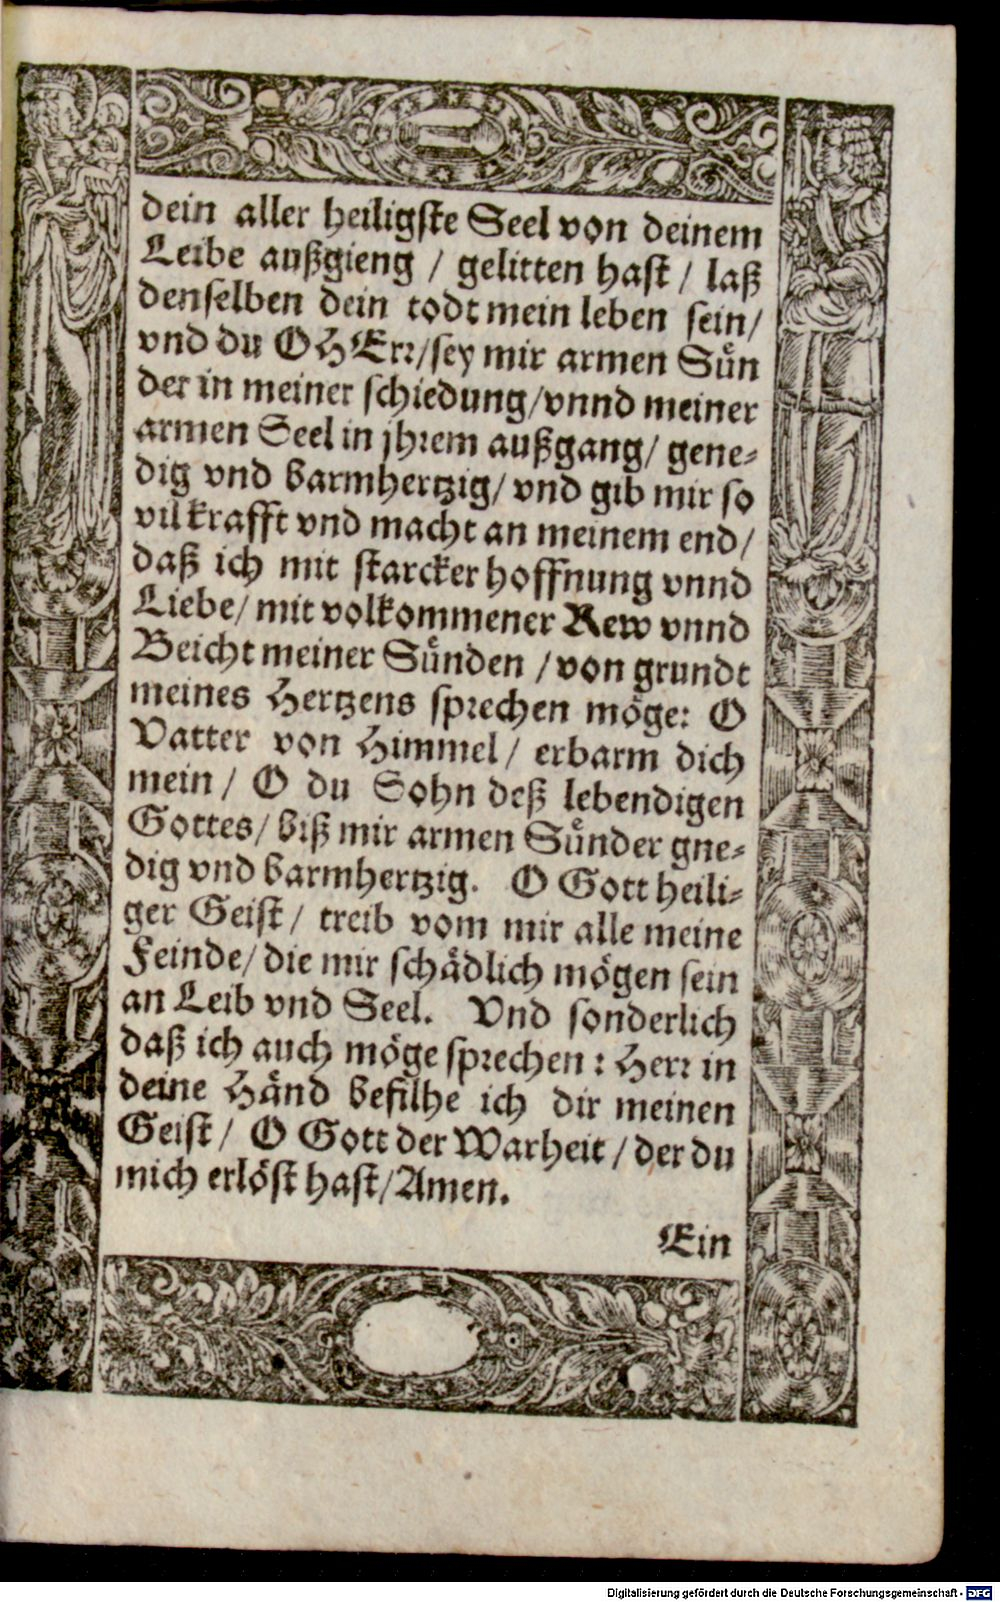 dein aller heiligste Seel von deinem
Leibe außgieng / gelitten hast / laß
denselben dein todt mein leben sein /
vnd du O HErr / sey mir armen Sün
der in meiner schiedung / vnnd meiner
armen Seel in jhrem außgang / gene-
dig vnd barmhertzig / vnd gib mir so
vil krafft vnd macht an meinem end /
daß ich mit starcker hoffnung vnnd
Liebe / mit volkommener Rew vnnd
Beicht meiner Sünden / von grundt
meines Hertzens sprechen möge: O
Vatter von Himmel / erbarm dich
mein / O du Sohn deß lebendigen
Gottes / biß mir armen Sünder gne-
dig vnd barmhertzig. O Gott heili-
ger Geist / treib vom mir alle meine
Feinde / die mir schädlich mögen sein
an Leib vnd Seel. Vnd sonderlich
daß ich auch möge sprechen : Herr in
deine Händ befilhe ich dir meinen
Geist / O Gott der Warheit / der du
mich erlöst hast / Amen.
Ein
Digitalisierung gefördert durch die Deutsche Forschungsgemeinschaft - DFG